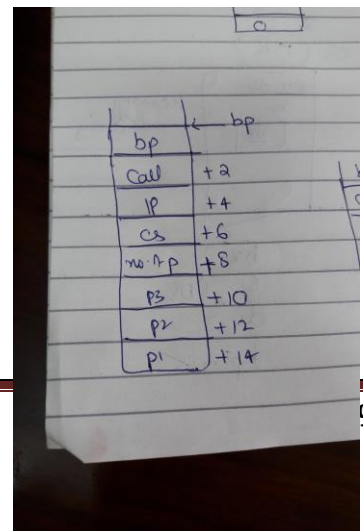 0
← bp
bp
Call +2
IP +4
cs +6
no. +8
P3 +10
P2 +12
P1 +14